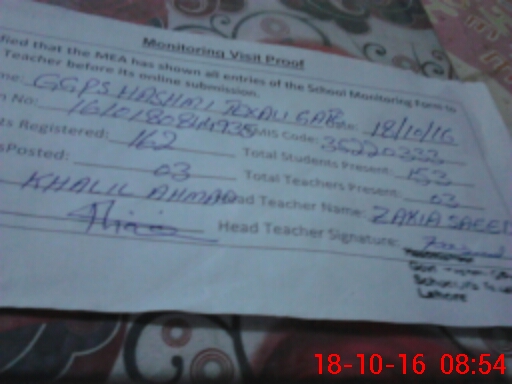 Monitoring Visit Proof
fied that the MEA has shown all entries of the School Monitoring Form to
Teacher before its online submission.
me: GGPS HASHMI Date: 18/10/16
n No: EMIS Code: 35220333
ts Registered: 162 Total Students Present: 153
sPosted: 03 Total Teachers Present: 03
KHALIL AHMAD ead Teacher Name: ZAKIA SAEED
Head Teacher Signature:
Lahore
18-10-16 08:54